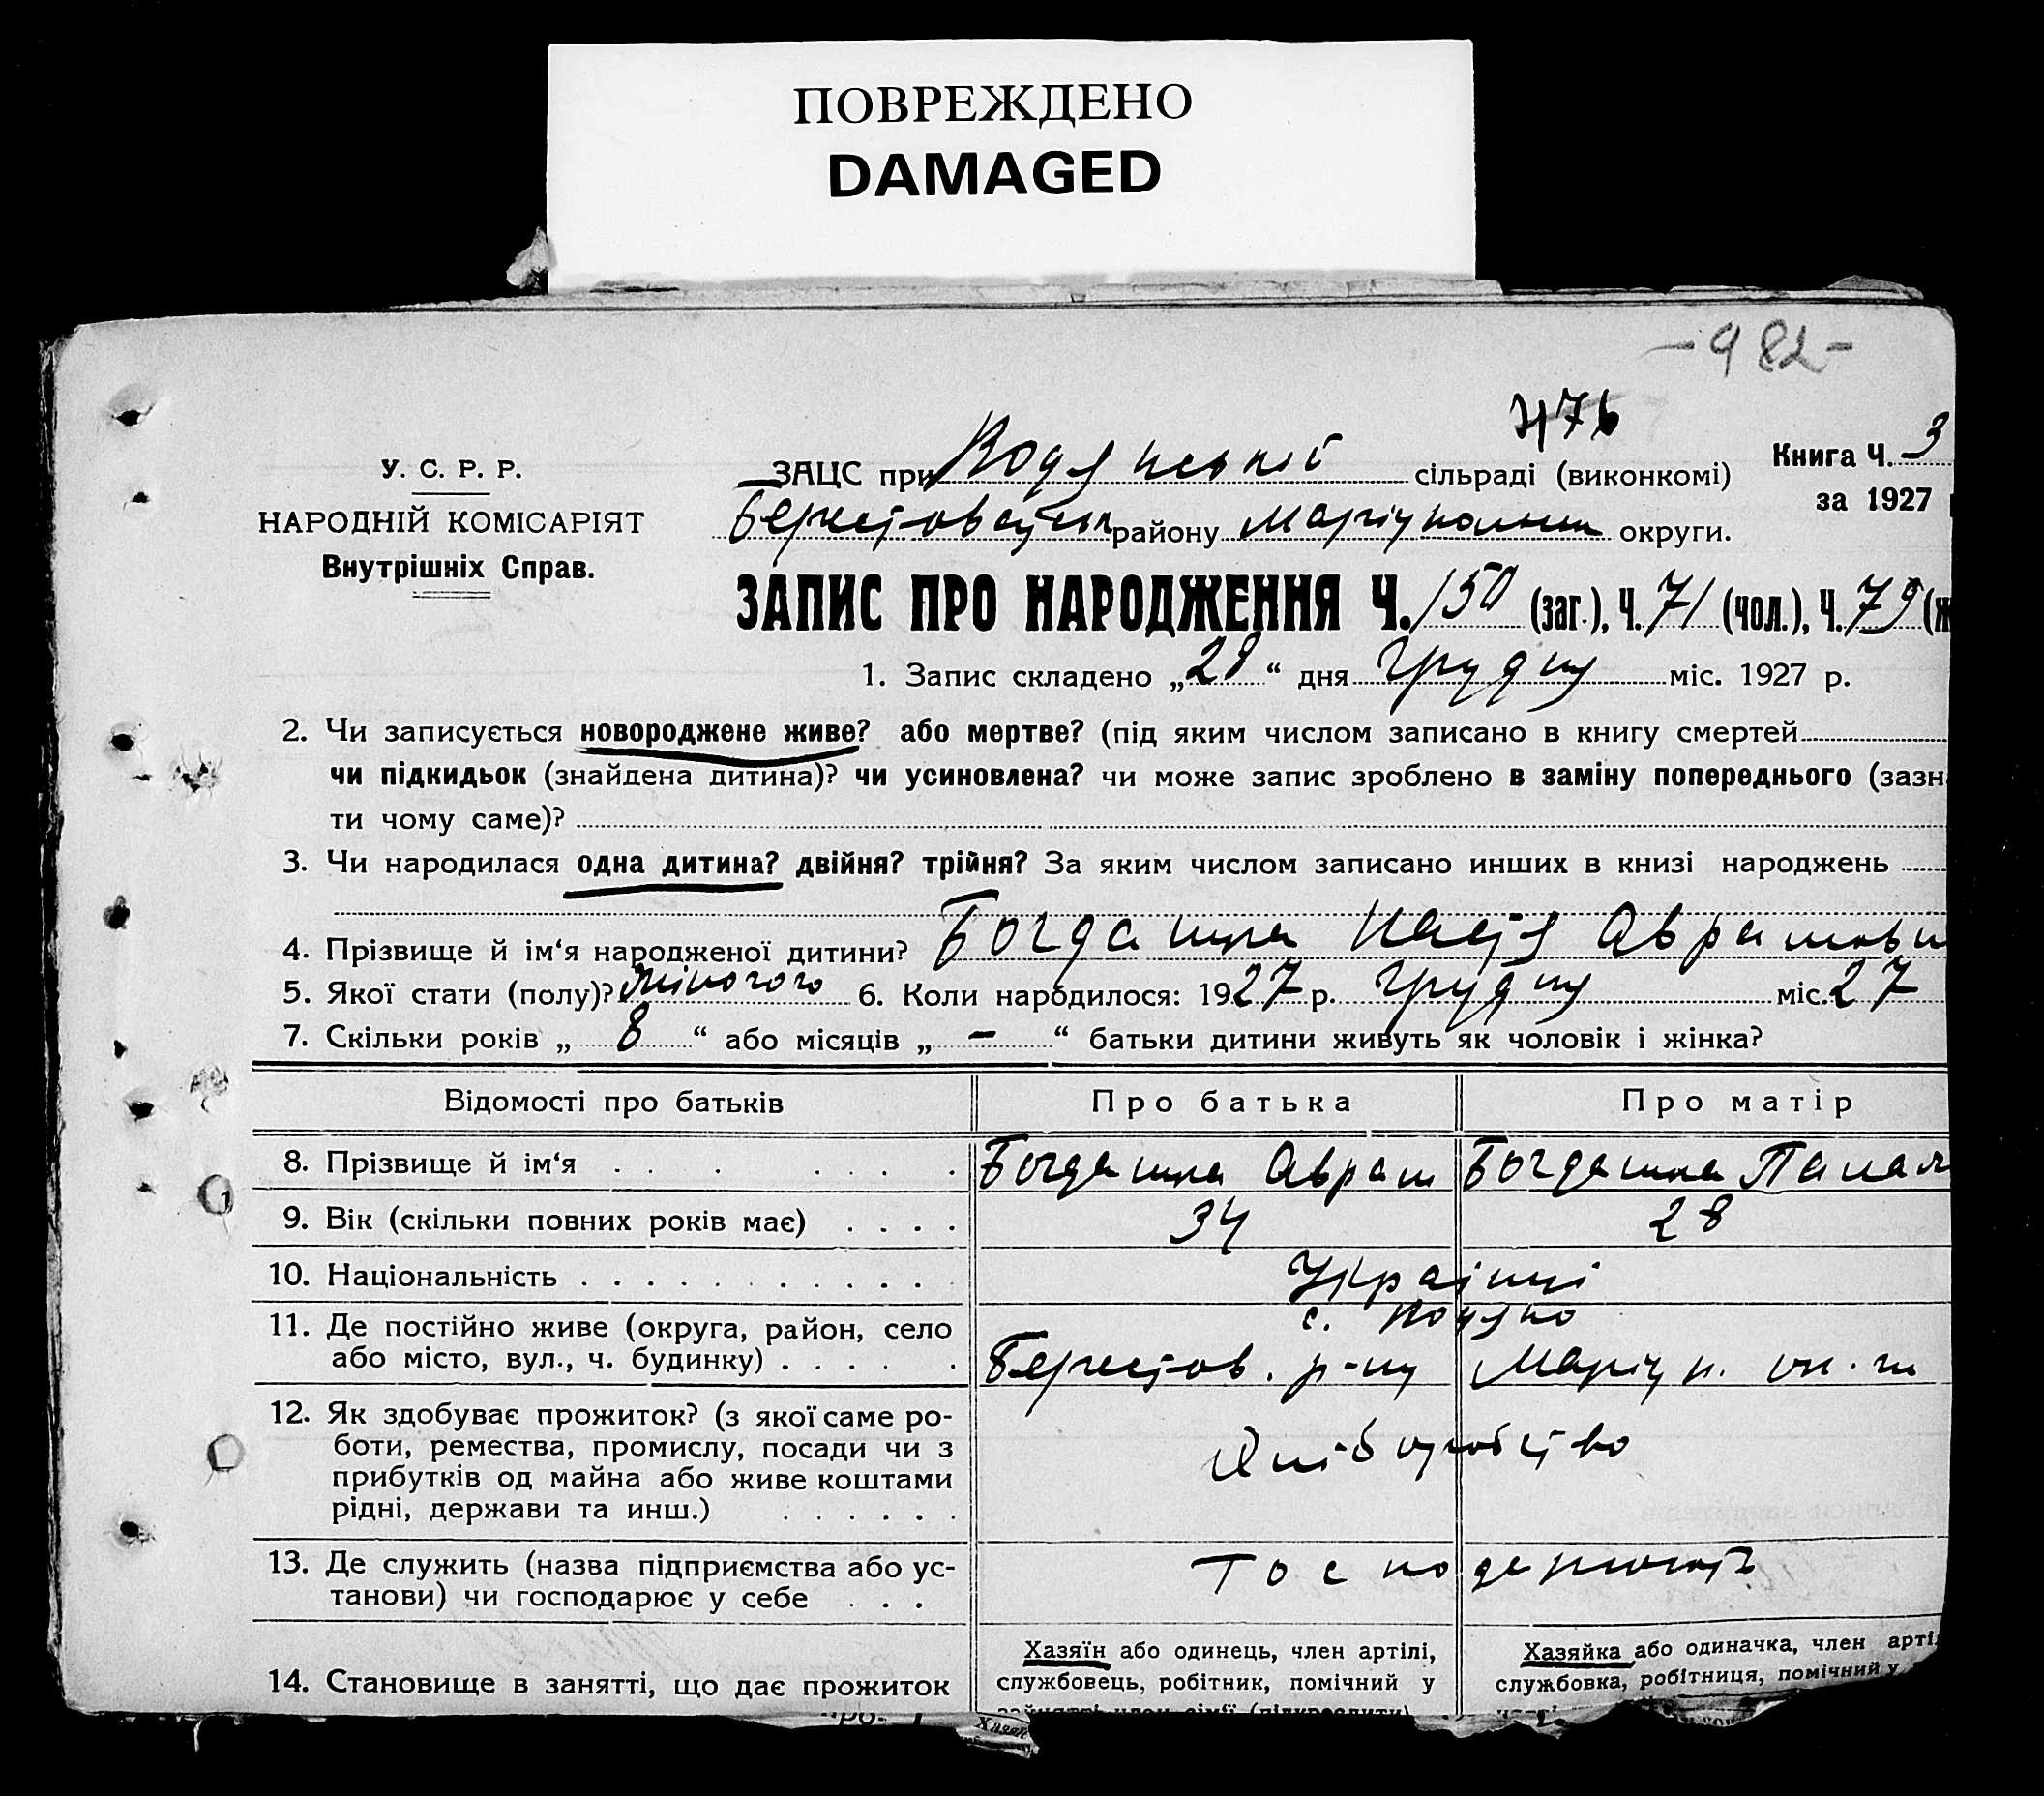 ПОВРЕЖДЕНО
DAMAGED
-982-
476
У. С. Р. Р.
НАРОДНІЙ КОМІСАРІЯТ
Внутрішніх Справ.
ЗАЦС при Водянській сільраді (виконкомі)
Книга Ч. 3
за 1927
району округи.
ЗАПИС ПРО НАРОДЖЕННЯ Ч. 150 (заг.), Ч. 71 (чол.), Ч. 79 (ж
1. Запис складено „ “ дня Грудня міс. 1927 р.
2. Чи записується новороджене живе? або мертве? (під яким числом записано в книгу смертей
чи підкидьок (знайдена дитина)? чи усиновлена? чи може запис зроблено в заміну попереднього (зазн
ти чому саме)?
3. Чи народилася одна дитина? двійня? трійня? За яким числом записано инших в книзі народжень
4. Прізвище й ім‘я народженої дитини?
5. Якої стати (полу)? жіночого 6. Коли народилося: 1927 р. Грудня міс. 27
7. Скільки років „ 8 “ або місяців „ - “ батьки дитини живуть як чоловік і жінка?
Відомості про батьків
Про батька
Про матір
8. Прізвище й ім‘я
9. Вік (скільки повних років має) 34 28
10. Національність Українці
11. Де постійно живе (округа, район, село с. Водяно
або місто, вул., ч. будинку) Берестов. р-ну Маріуп. ок-ги
12. Як здобуває прожиток? (з якої саме ро-
боти, ремества, промислу, посади чи з
прибутків од майна або живе коштами
рідні, держави та инш.)
Хліборобство
13. Де служить (назва підприємства або ус-
танови) чи господарює у себе
14. Становище в занятті, що дає прожиток
Хазяїн або одинець, член артілі,
службовець, робітник, помічний у
Хазяйка або одиначка, член арті
службовка, робітниця, помічний у